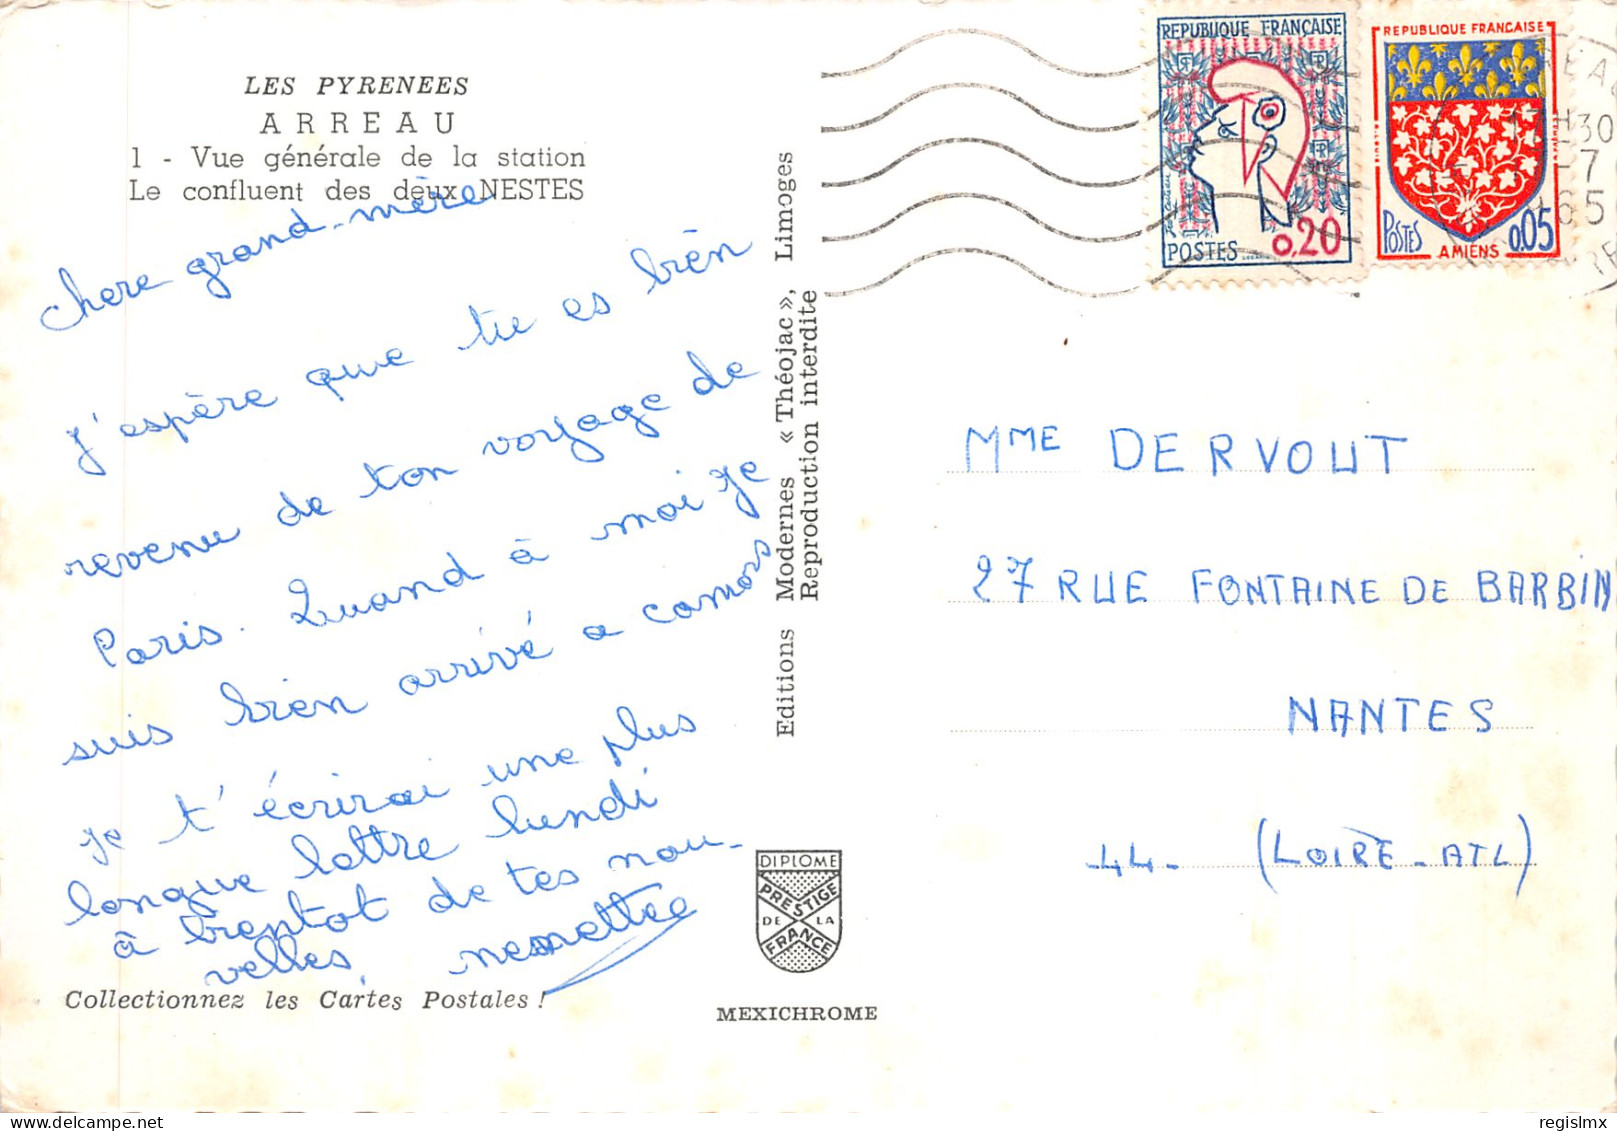 LES PYRENEES
ARREAU
1 - Vue générale de la station
Le confluent des deux NESTES
chere grand-mère
j'espère que tu es bien
revenue de ton voyage de
Paris. Quand à moi je
suis bien arrivé a camors
je t'écrirai une plus
longue lettre lundi
à bientot de tes nou-
velles,
Collectionnez les Cartes Postales !
Editions Modernes « Théojac », Limoges
Reproduction interdite
DIPLOME
PRESTIGE
DE LA
FRANCE
MEXICHROME
REPUBLIQUE FRANÇAISE
RF
RF
POSTES 0,20
REPUBLIQUE FRANCAISE
POSTES 0,05
AMIENS
H30
7
65
MME DERVOUT
27 RUE FONTAINE DE BARBIN
NANTES
44- (LOIRE-ATL)
regislmx